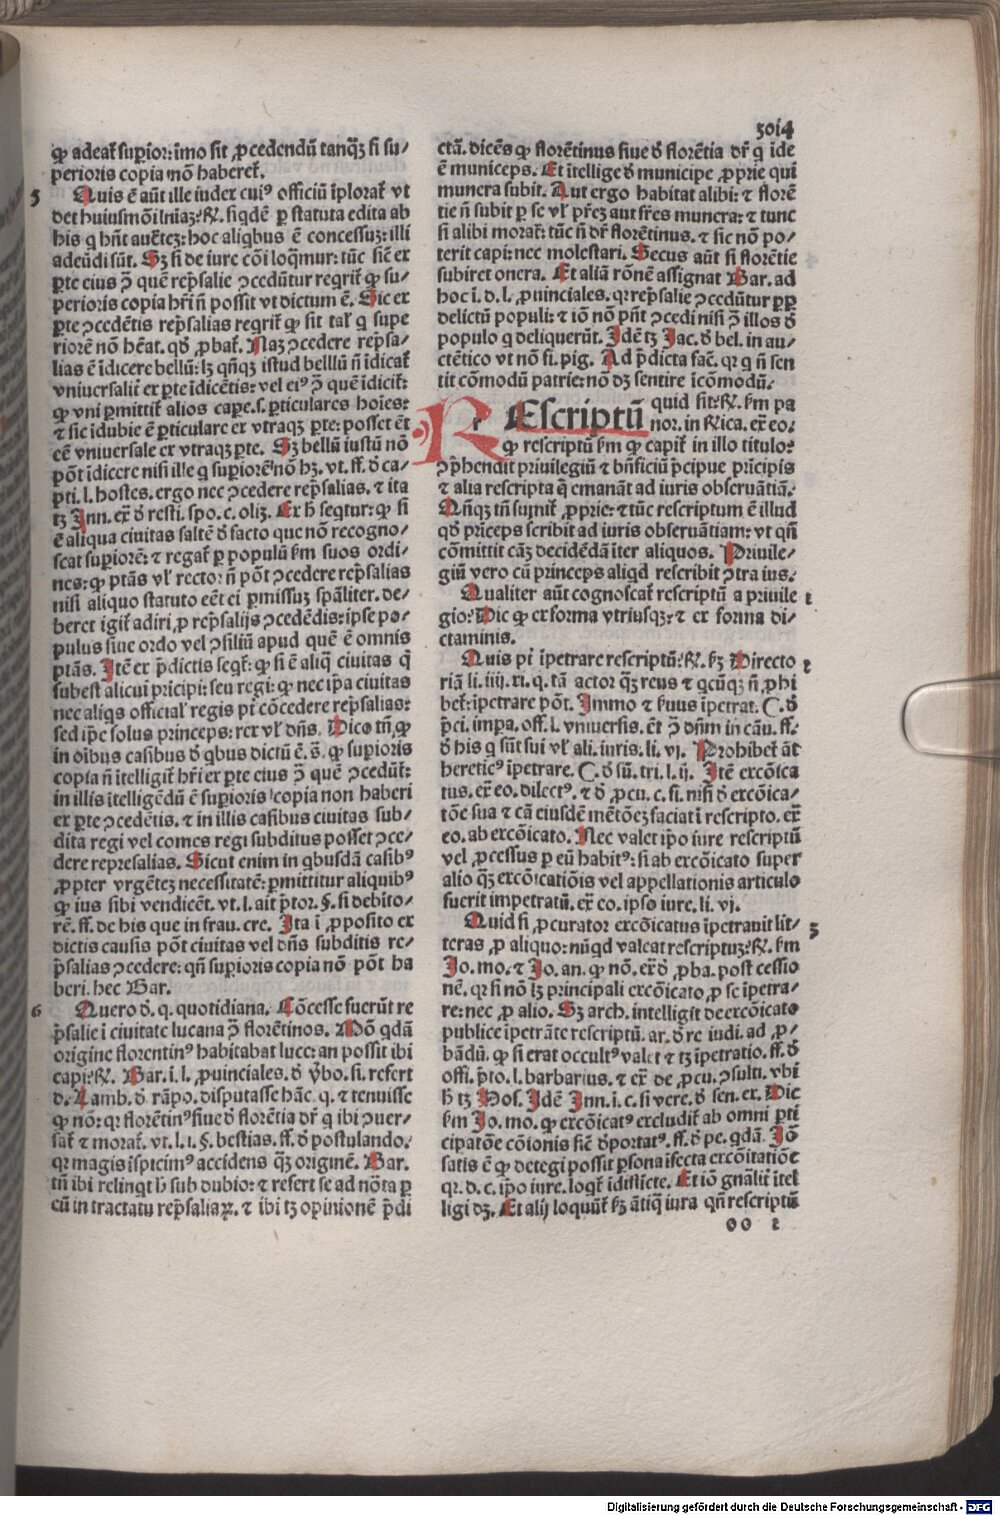 ꝙ adeat᷑ superior: īmo sit ꝓcedendū tanqȝ̄ si su⸗
perioris copia nō haberet᷑.
5 Quis ē aūt ille iudex cuiꝰ officiū īplorat᷑ vt
det huiusmōi lrīaȝ: R̸. siqdē p̱ statuta edita ab
his q hn̄t auc̄teȝ: hoc aliqbus ē concessuȝ: illi
adeūdi sūt. Sȝ si de iure cōi loqmur: tūc sic̄ ex
p̱te eius ꝯ̄ quē rep̄salie ꝯcedūtur regrit᷑ ꝙ su⸗
perioris copia hr̄i n̄ possit vt dictum ē. Sic ex
p̱te ꝯcedētis rep̄salias regrit᷑ ꝙ sit tal᷑ q supe
riorē nō hēat. qđ ꝓbat᷑. Naȝ ꝯcedere rep̄sa⸗
lias ē īdicere bellū: lȝ qn̄qȝ istud belllū n̄ īdicat᷑
vniuersalit᷑ ex p̱te īdicētis: vel eiꝰ ꝯ̄ quē īdicit᷑:
ꝙ vni p̱mittit᷑ alios cape. s. p̱ticulares hoīes:
⁊ sic īdubie ē p̱ticulare ex vtraqȝ p̱te: posset ēt
eē vniuersale ex vtraqȝ p̱te. Sȝ bellū iustū nō
pōt īdicere nisi ille q superiorē nō hȝ. vt. ff. đ ca⸗
pti. l. hostes. ergo nec ꝯcedere rep̄salias. ⁊ ita
tȝ Inn. ex̄ đ resti. spo. c. oliȝ. Ex h̄ seqtur: ꝙ si
ē aliqua ciuitas saltē đ facto que nō recogno⸗
scat supiorē: ⁊ regat᷑ p̱ populū s̄m suos ordi⸗
nes: ꝙ ptās vl᷑ rector n̄ pōt ꝯcedere rep̄salias
nisi aliquo statuto eēt ei p̱missuȝ spāliter. de⸗
beret igit᷑ adiri ꝓ rep̄salijs ꝯcedēdis: ipse po⸗
pulus siue ordo vel ꝯsiliū apud quē ē omnis
ptās. Itē ex p̄dictis seqt᷑: ꝙ si ē aliq̄ ciuitas q̄
subest alicui prīcipi: seu regi: ꝙ nec ip̄a ciuitas
nec aliqs official᷑ regis pt̄ cōcedere rep̄salias:
sed ip̄e solus princeps: rex vl᷑ dn̄s. Dico tn̄ ꝙ
in oībus casibus đ qbus dictū ē. s̄. ꝙ sup̱ioris
copia n̄ itelligit᷑ hr̄i ex p̱te eius ꝯ̄ quē ꝯcedūt᷑:
in illis itelligēdū ē sup̱ioris copia non haberi
ex p̱te ꝯcedētis. ⁊ in illis casibus ciuitas sub⸗
dita regi vel comes regi subditus posset ꝯce⸗
dere represalias. Sicut enim in qbusdā casibꝰ
ꝓpter vrgēteȝ necessitatē: p̱mittitur aliquibꝰ
ꝙ ius sibi vendicēt. vt. l. ait p̄tor. §. si debito⸗
rē. ff. de his que in frau. cre. Ita ī ꝓposito ex
dictis causis pōt ciuitas vel dn̄s subditis re⸗
p̄salias ꝯcedere: qn̄ sup̱ioris copia nō pōt ha
beri. hec Bar.
6 Quero đ. q. quotidiana. Cōcesse fuerūt re
p̄salie ī ciuitate lucana ꝯ̄ florētinos. Mō qdā
origine florentinꝰ habitabat luce: an possit ibi
capi: R̸. Bar. ī. l. ꝓuinciales. đ v̄bo. si. refert
d. Lamb. đ rāpo. disputasse hāc. q. ⁊ tenuisse
ꝙ nō: qr florētinꝰ siue đ florētia dr̄ q ibi ꝯuer⸗
sat᷑ ⁊ morat᷑. vt. l. ı. §. bestias. ff. đ postulando.
qr magis īspicimꝰ accidens qȝ̄ originē. Bar.
tn̄ ibi relinqt h̄ sub dubio: ⁊ refert se ad nōta p̱
eū in tractatu rep̄saliaꝝ. ⁊ ibi tȝ opinionē p̄di
3014
ctā. dicēs ꝙ florētinus siue đ florētia dr̄ q īde
ē municeps. Et ītellige đ municipe ꝓprie qui
munera subit. Aut ergo habitat alibi: ⁊ florē
tie n̄ subit p̱ se vl᷑ pr̄eȝ aut fr̄es munera: ⁊ tunc
si alibi morat᷑: tūc n̄ dr̄ florētinus. ⁊ sic nō po⸗
terit capi: nec molestari. Secus aūt si florētie
subiret onera. Et aliā rōnē assignat Bar. ad
hoc ī. d. l. ꝓuinciales. qr rep̄salie ꝯcedūtur p̱p̱
delictū populi: ⁊ iō nō pn̄t ꝯcedi nisi ꝯ̄ illos đ
populo q deliquerūt. Idē tȝ Jac. đ bel. in au⸗
ctētico vt nō fi. pig. Ad p̄dicta faē. qr q n̄ sen
tit cōmodū patrie: nō dȝ sentire īcōmodū.
REscriptū quid sit: R̸. s̄m pa
nor. in Rica. ex̄ eo:
ꝙ rescriptū s̄m ꝙ capit᷑ in illo titulo:
ꝯp̄hendit priuilegiū ⁊ bn̄ficiū p̄cipue pr̄icipis
⁊ alia rescripta q̄ emanāt ad iuris obseruātiā.
Qn̄qȝ tn̄ sumit᷑ ꝓprie: ⁊ tūc rescriptum ē illud
qđ pr̄iceps scribit ad iuris obseruātiam: vt qn̄
cōmittit cāȝ decidēdā īter aliquos. Priuile⸗
giū vero cū princeps aliqd rescribit ꝯtra ius.
Qualiter aūt cognoscat᷑ rescriptū a priuile 1
gio: Dic ꝙ ex forma vtriusqȝ: ⁊ ex forma di⸗
ctaminis.
Quis pt̄ īpetrare rescriptū: R̸. s̄ȝ Directo 2
riā li. iiij. xi. q. tā actor qȝ̄ reus ⁊ qcūqȝ n̄ ꝓhi
bet᷑: īpetrare pōt. Immo ⁊ s̄uus īpetrat. C. đ
p̄ci. impa. off. l. vniuersis. ēt ꝯ̄ dn̄m in cāu. ff.
đ his q sūt sui vl᷑ ali. iuris. li. vj. Prohibet᷑ āt
hereticꝰ īpetrare. C. đ sū. tri. l. ij. Itē excōica
tus. ex̄ eo. dilectꝰ. ⁊ đ ꝓcu. c. si. nisi đ excōica⸗
tōe sua ⁊ cā eiusdē mētōeȝ faciat ī rescripto. ex̄
eo. ab excōicato. Nec valet ip̄o iure rescriptū
vel ꝓcessus p̱ eū habitꝰ: si ab excōicato super
alio qȝ̄ excōicatiōis vel appellationis articulo
fuerit impetratū. ex̄ eo. ipso iure. li. vj.
Quid si ꝓcurator excōicatus īpetrauit lit⸗ 3
teras ꝓ aliquo: nūqd valeat rescriptuȝ: R̸. s̄m
Jo. mo. ⁊ Jo. an. ꝙ nō. ex̄ đ ꝓba. post cessio
nē. qr si nō lȝ principali excōicato ꝓ se īpetra⸗
re: nec ꝓ alio. Sȝ arch. intelligit de excōicato
publice īpetrāte rescriptū. ar. đ re iudi. ad ꝓ⸗
bādū. ꝙ si erat occultꝰ valet ⁊ tȝ īpetratio. ff. đ
offi. p̄to. l. barbarius. ⁊ ex̄ de ꝓcu. ꝯsulti. vbi
h̄ tȝ Hos. Idē Inn. ī. c. si vere. đ sen. ex. Dic
s̄m Jo. mo. ꝙ excōicatꝰ excludit᷑ ab omni p̱ti
cipatōe cōionis sic̄ đportatꝰ. ff. đ pe. qdā. Iō
satis ē ꝙ detegi possit p̱sona īfecta excōitatiōe
qr. d. c. ip̄o iure. loqt᷑ īdistīcte. Et iō gn̄alit᷑ itel
ligi dȝ. Et alij loquūt᷑ s̄ȝ ātiq̄ iura qn̄ rescriptū
oo 1
Digitalisierung gefördert durch die Deutsche Forschungsgemeinschaft - DFG